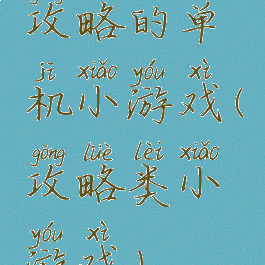 gōng
攻略的单
jī xiǎo yóu xì
机小游戏(
gōng lüè lèi xiǎo
攻略类小
yóu xì
游戏)